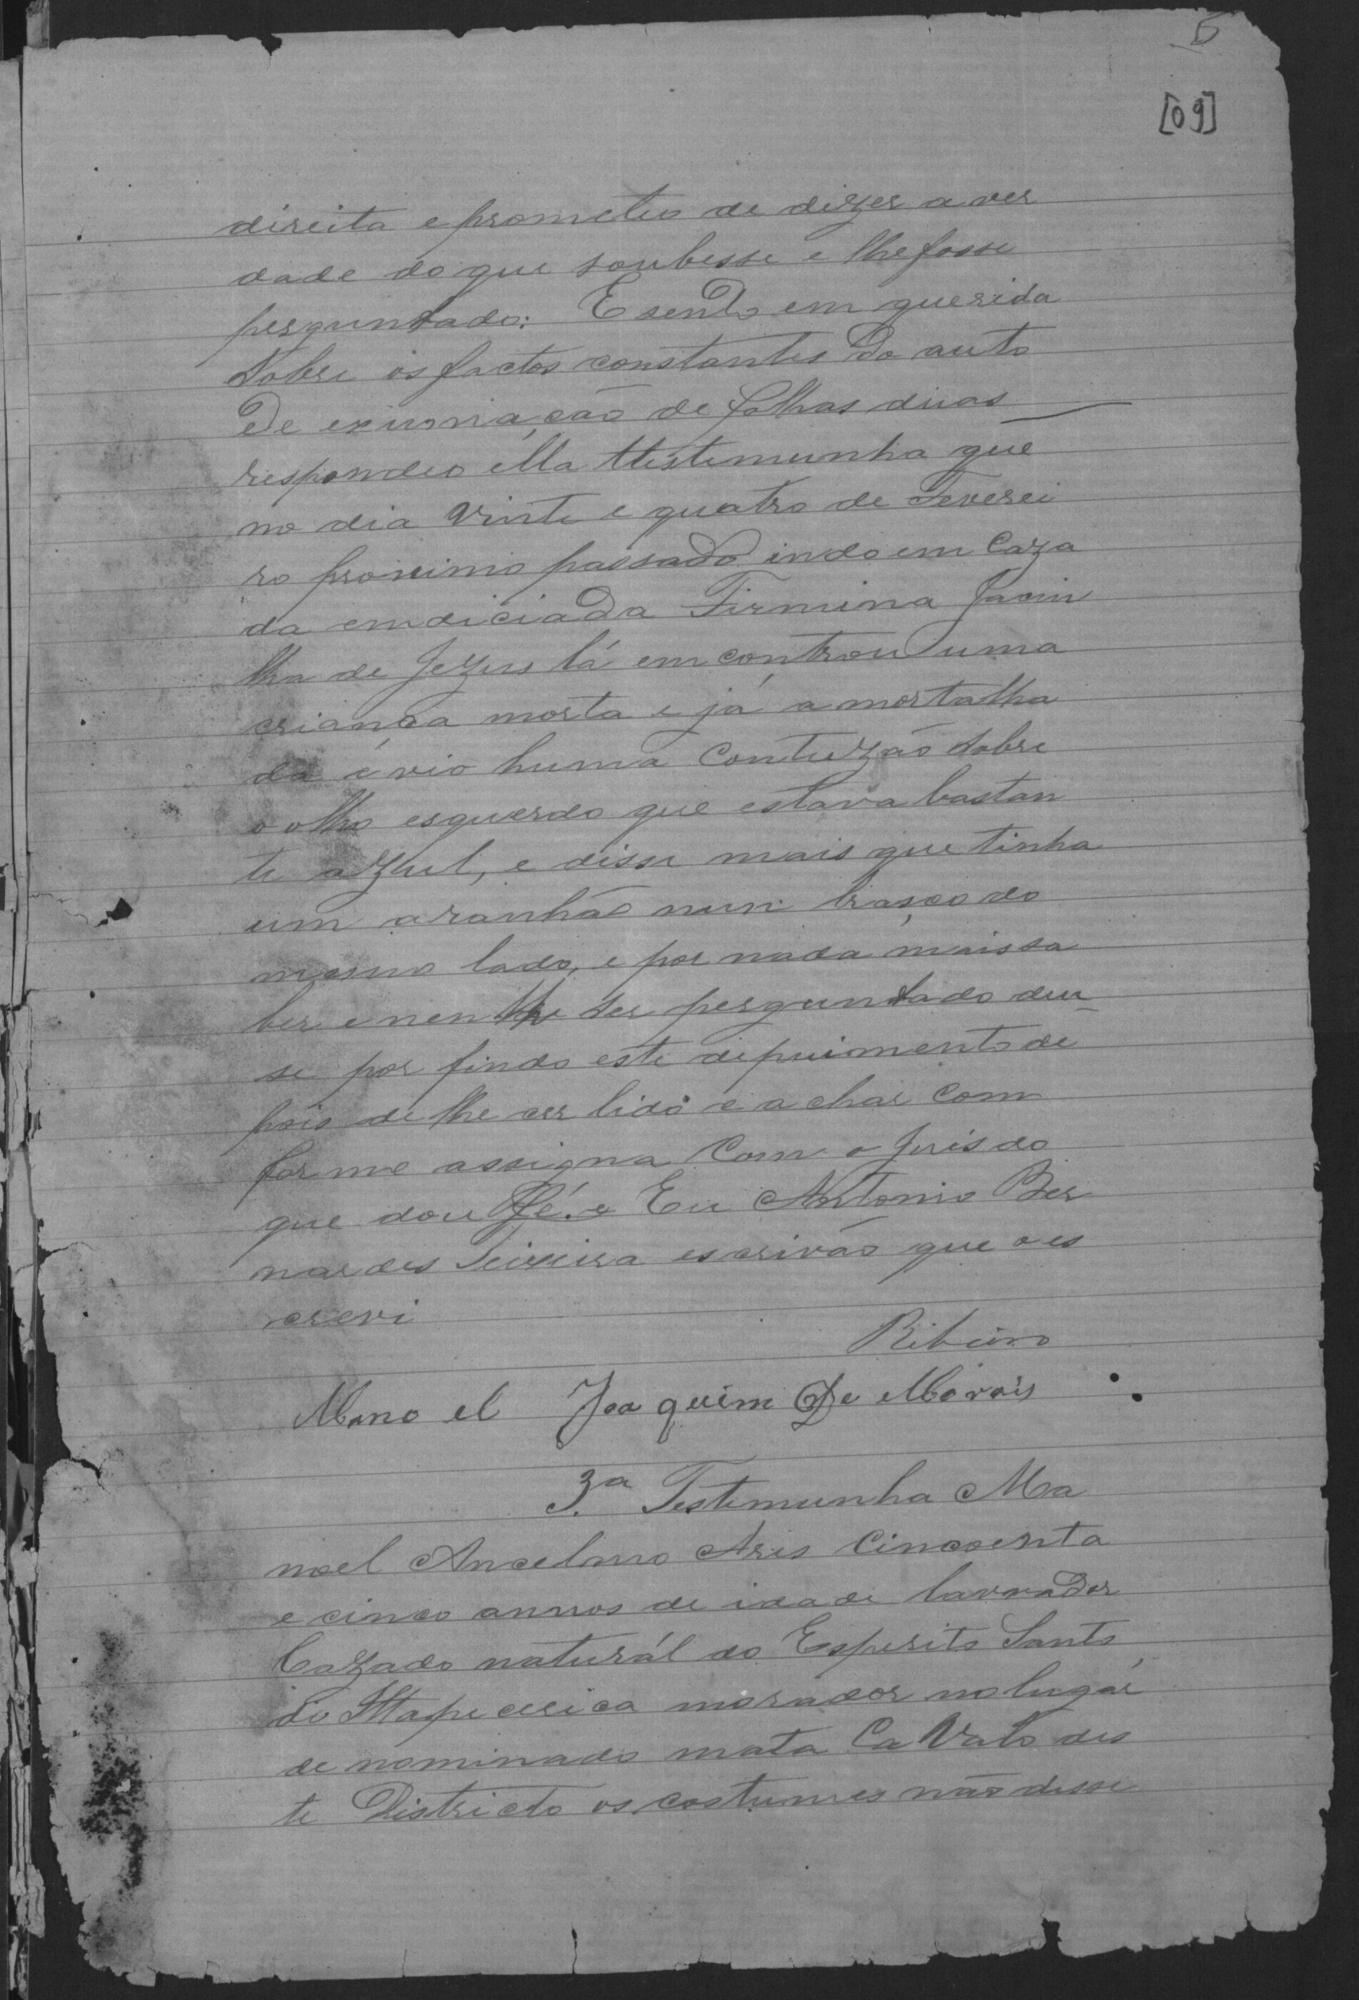 5
[09]
direita e prometeo de dizer a ver
dade do que soubesse e lhe fosse
perguntado: E sendo em querida
Sobre os factos constantes do auto
De exumação de folhas duas
respondeo ella ttestemunha que
no dia vinte e quatro de Feverei
ro proximo passado indo em Caza
da emdiciada Firmina Jacin
tha de Jezus lá em controu uma
criança morta e já a mortalha
da é vio huma Contuzão Sobre
o olho esquerdo que estava bastan
te azul, e disse mais que tinha
um aranhão num braço do
mesmo lado, e por nada mais sa
ber e nem lhe ser perguntado deu
se por findo este depuimento de
pois de lhe cer lido e a char com
forme assigna Com o Juis do
que dou fé. e Eu Antonio Ber
nardes Teixeira escrivão que o es
crevi
Ribeiro
Mano el Joa quim De Morais
3.ª Testemunha Ma
noel Ancelmo Ares Cincoenta
e cinco annos de idade lavrador
Cazado naturál do Esperito Santo
do Itapecerica morador no lugár
de nominado mata Ca Valo des
te Districto os costumes não disse